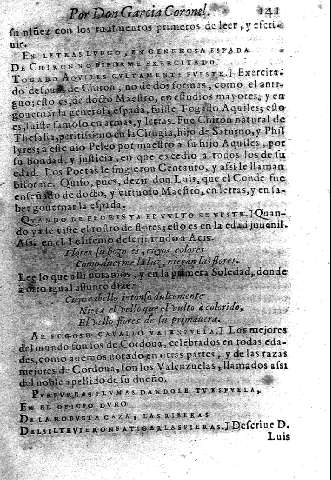 Por Don Garcia Coronel. 141
su niñez con los rudimentos primeros de leer, y escri-
uir.
EN LETRAS LUEGO, EN GENEROSA ESPADA
DE CHIRON NO BIFORME EXERCITADO.
TOGADO AQUILES CULTAMENTE FVISTE.] Exercita-
do despues de Chiron, no de dos formas, como el anti-
guo; esto es, de docto Maestro, en estudios mayores, y en
gouernar la generosa espada, fuiste Togado Aquiles; esto
es, saliste famoso en armas, y letras. Fue Chiron natural de
Thesalia, peritissimo en la Cirugia, hijo de Saturno, y Phil
lyres; a este dio Peleo por maestro a su hijo Aquiles, por
su bondad, y justicia, en que excedio a todos los de su
edad. Los Poetas le fingieron Centauro, y assi le llaman
biforme. Quiso, pues, dezir don Luis, que el Conde fue
enseñado de docto, y virtuoso Maestro, en letras, y en sa-
ber gouernar la espada.
QUANDO DE FLOR ISTA EL VULTO SE VISTE.] Quan-
do ya se viste el rostro de flores; esto es en la edad juuenil.
Assi en el Polifemo descriuiendo a Acis.
flores su bozo es, cuyos colores
Como duerme la luz, niegan las flores.
Lee lo que alli notamos, y en la primera Soledad, donde
a otro igual assunto dize:
Cuyo bello intonso dulcemente
Niega el vello que el vulto à colorido,
El vello flores de su primauera.
AL FOGOSO CAVALLO VALENÇUELA.] Los mejores
del mundo son los de Cordoua, celebrados en todas eda-
des, como auemos notado en otras partes, y de las razas
mejores de Cordoua, son los Valençuelas, llamados assi
del noble apellido de su dueño.
PURPUREAS PLUMAS DANDOLE TU ESPUELA,
EN EL OFICIO DURO
DE LA ROBUSTA CAZA, LAS RIBERAS
DEL SIL TE VIERON FATIGAR LAS FIERAS.] Descriue D.
Luis